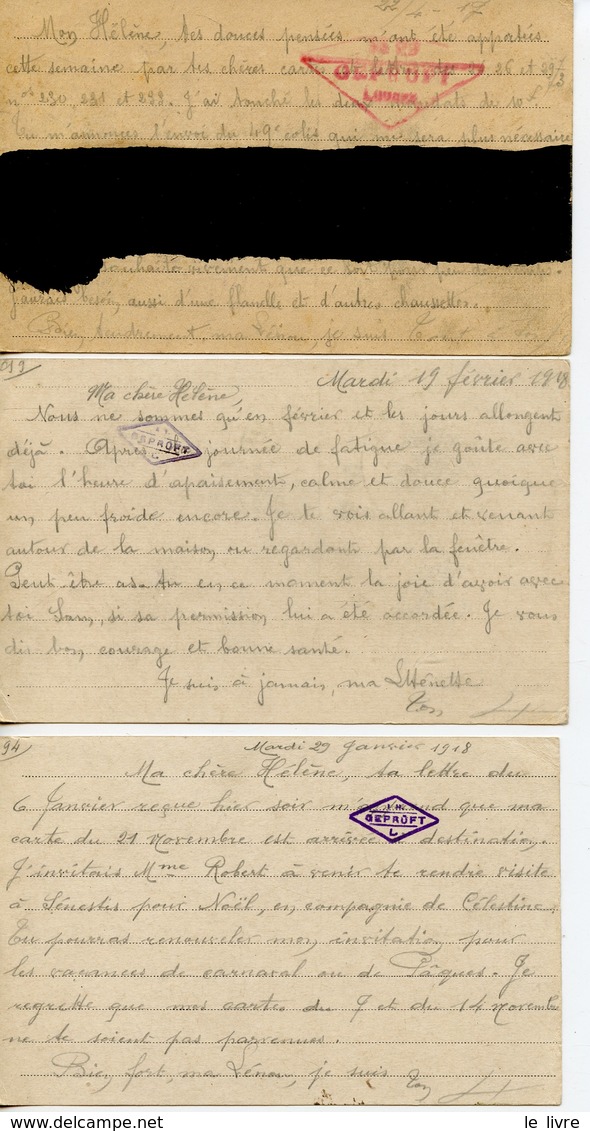 27/4-17
Mon Hélène, tes douces pensées m'ont été apportées
cette semaine par tes chères cartes et lettre du 26 et 29/3
nos 230, 231 et 233. J'ai touché les deux mandats de 10f
GEPRÜFT
Tu m'annonces l'envoi du 49e colis qui me sera plus nécessaire
souhaite vivement que ce soit pour peu de
J'aurais besoin aussi d'une flanelle et d'autres chaussettes.
Bien tendrement, ma Lénou, je suis
Mardi 19 février 1918
Ma chère Hélène,
Nous ne sommes qu'en février et les jours allongent
déjà. Après journée de fatigue je goûte avec
GEPRÜFT
L.
toi l'heure d'apaisement, calme et douce quoique
un peu froide encore. Je te vois allant et venant
autour de la maison ou regardant par la fenêtre.
Peut être as-tu en ce moment la joie d'avoir avec
toi Sam, si sa permission lui a été accordée. Je vous
dis bon courage et bonne santé.
Je suis à jamais, ma
Ton
94
Mardi 29 Janvier 1918
Ma chère Hélène, ta lettre du
6 Janvier reçue hier soir que ma
I.H.
GEPRÜFT
L.
carte du 21 novembre est arrivée destination.
J'invitais Mme Robert à venir te rendre visite
à Sénestis pour Noël, en compagnie de Célestine.
Tu pourras renouveler mon invitation pour
les vacances de carnaval ou de Pâques. Je
regrette que mes cartes du 7 et du 14 novembre
ne te soient pas parvenues.
Bien fort, ma Lénou, je suis Ton
le livre